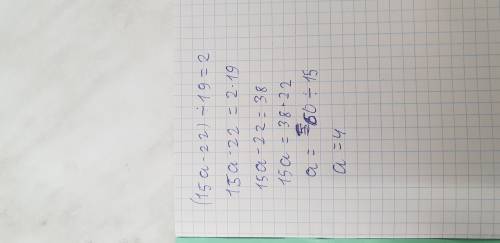 (15a-22)÷19=2
15a-22=2·19
15a-22=38
15a=38+22
a=60÷15
a=4